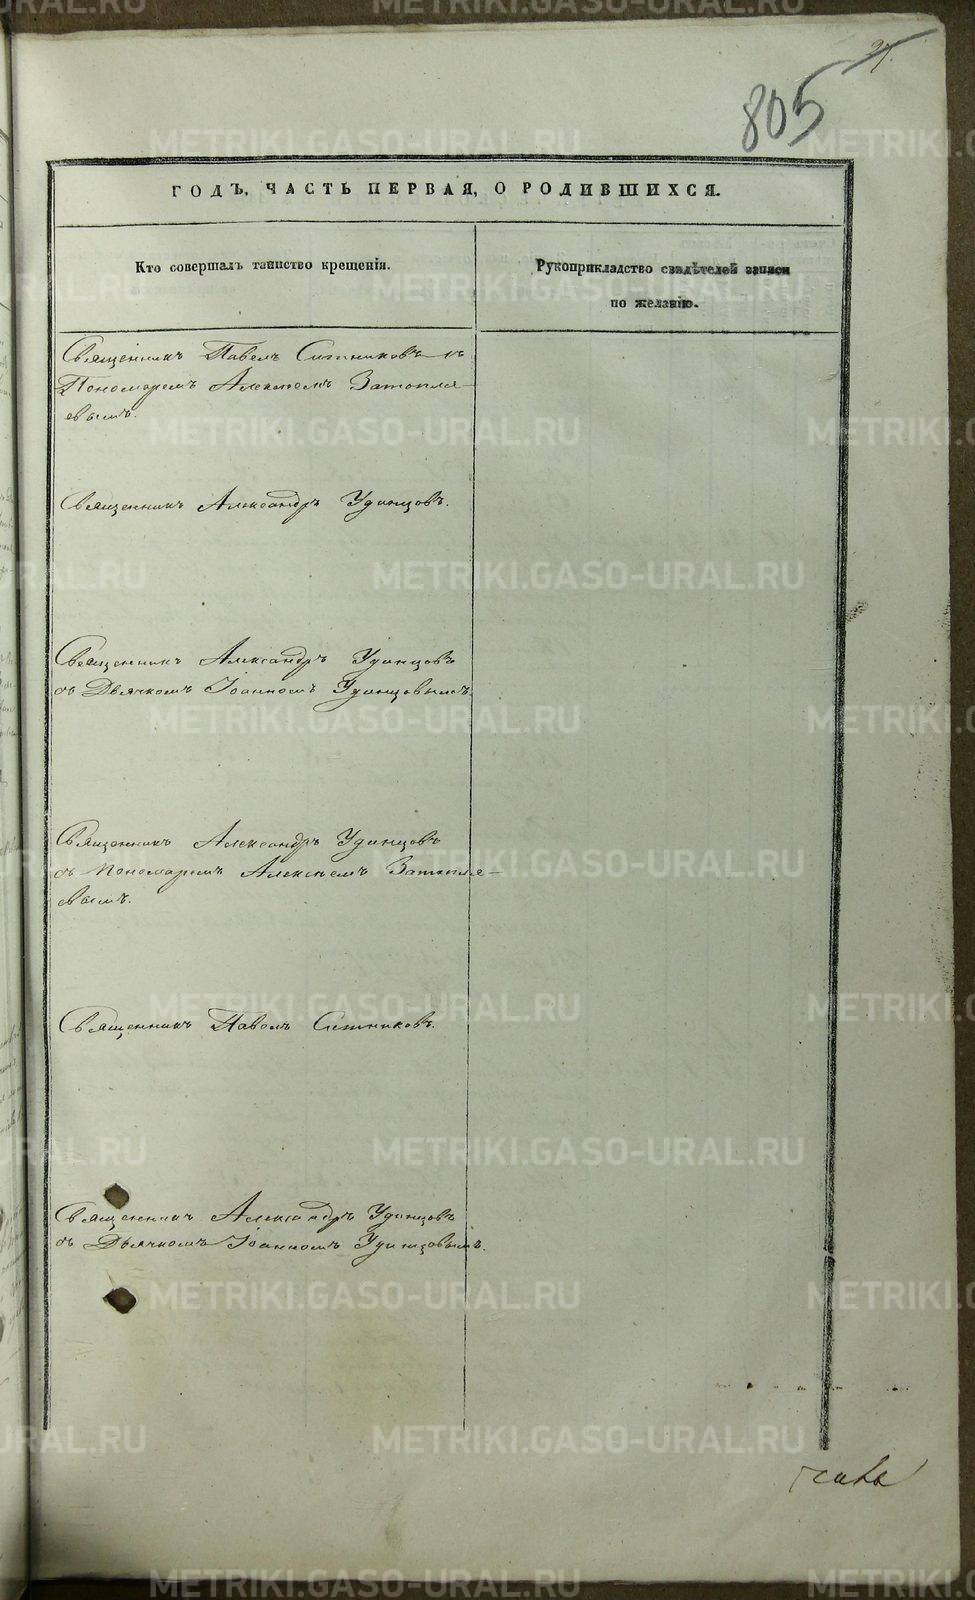 27.
805
ГОДЪ, ЧАСТЬ ПЕРВАЯ, О РОДИВШИХСЯ.
Кто совершалъ таинство крещенія.
Рукоприкладство свидѣтелей записи
по желанію.
Священникъ Павелъ Ситниковъ съ
Пономаремъ Алексѣемъ Затопля-
евымъ.
Священникъ Александръ Удинцовъ.
Священникъ Александръ Удинцовъ
съ Дьячкомъ Іоанномъ Удинцовымъ.
Священникъ Александръ Удинцовъ
съ Пономаремъ Алексѣемъ Затопля-
евымъ.
Священникъ Павелъ Ситниковъ.
Священникъ Александръ Удинцовъ
съ Дьячкомъ Іоанномъ Удинцовымъ.
METRIKI.GASO-URAL.RU